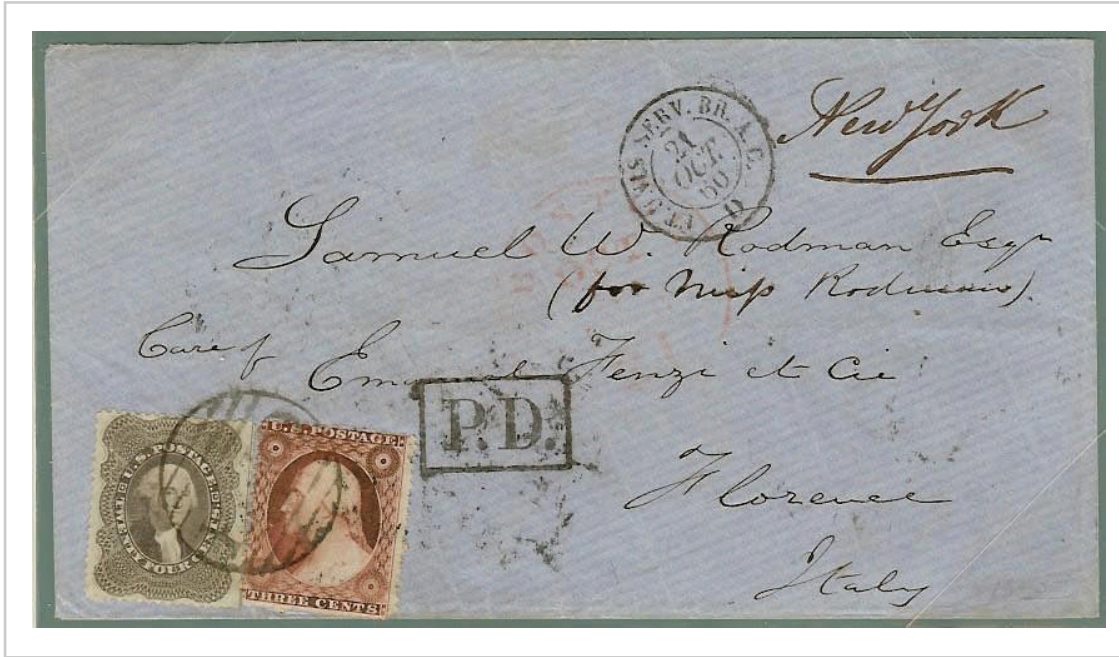 New York
ET. UNIS SERV. BR. A. C.
21
OCT.
60
D
Samuel W. Rodman Esqr
(for Miss Rodman).
Care of Emanuel Fenzi et Cie
P.D.
Florence
Italy
U.S. POSTAGE
TWENTY FOUR CENTS
U.S. POSTAGE
THREE CENTS